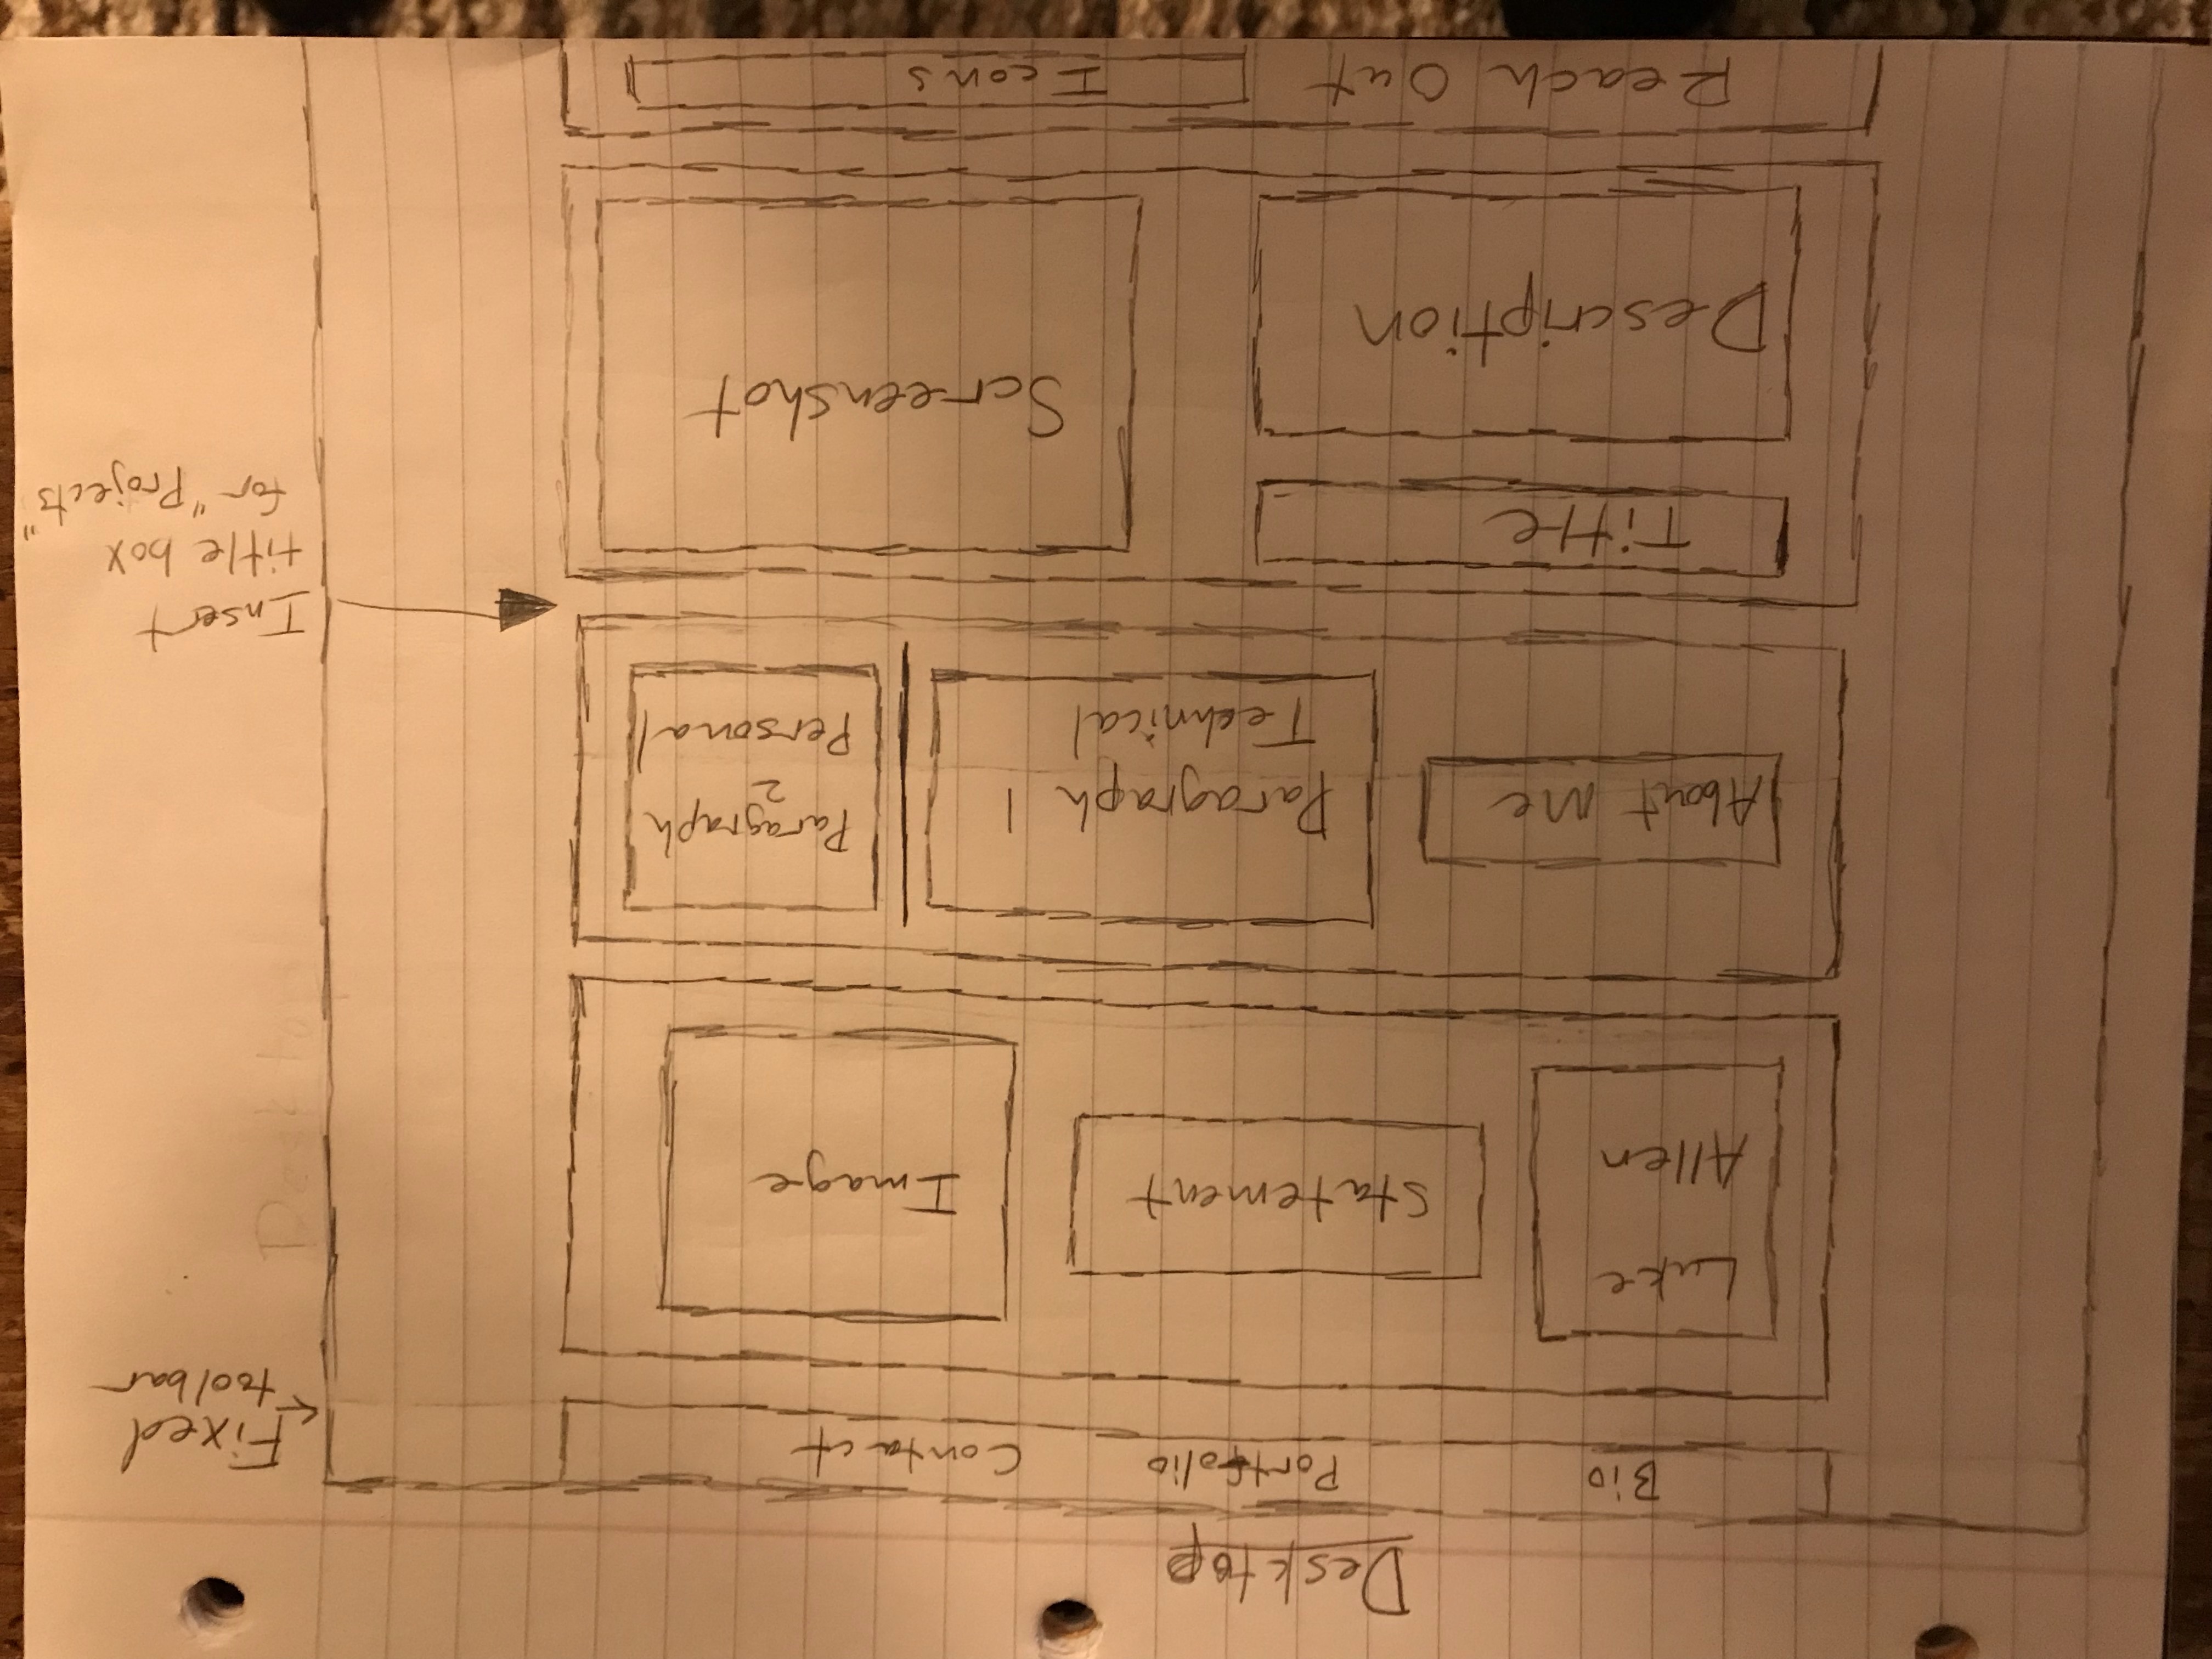 Desktop
Bio Portfolio Contact
←Fixed
toolbar
Luke
Allen
Statement
Image
Desktop
About Me
Paragraph 1
Technical
Paragraph
2
Personal
Insert
title box
for "Projects"
Title
Description
Screenshot
Reach Out
Icons